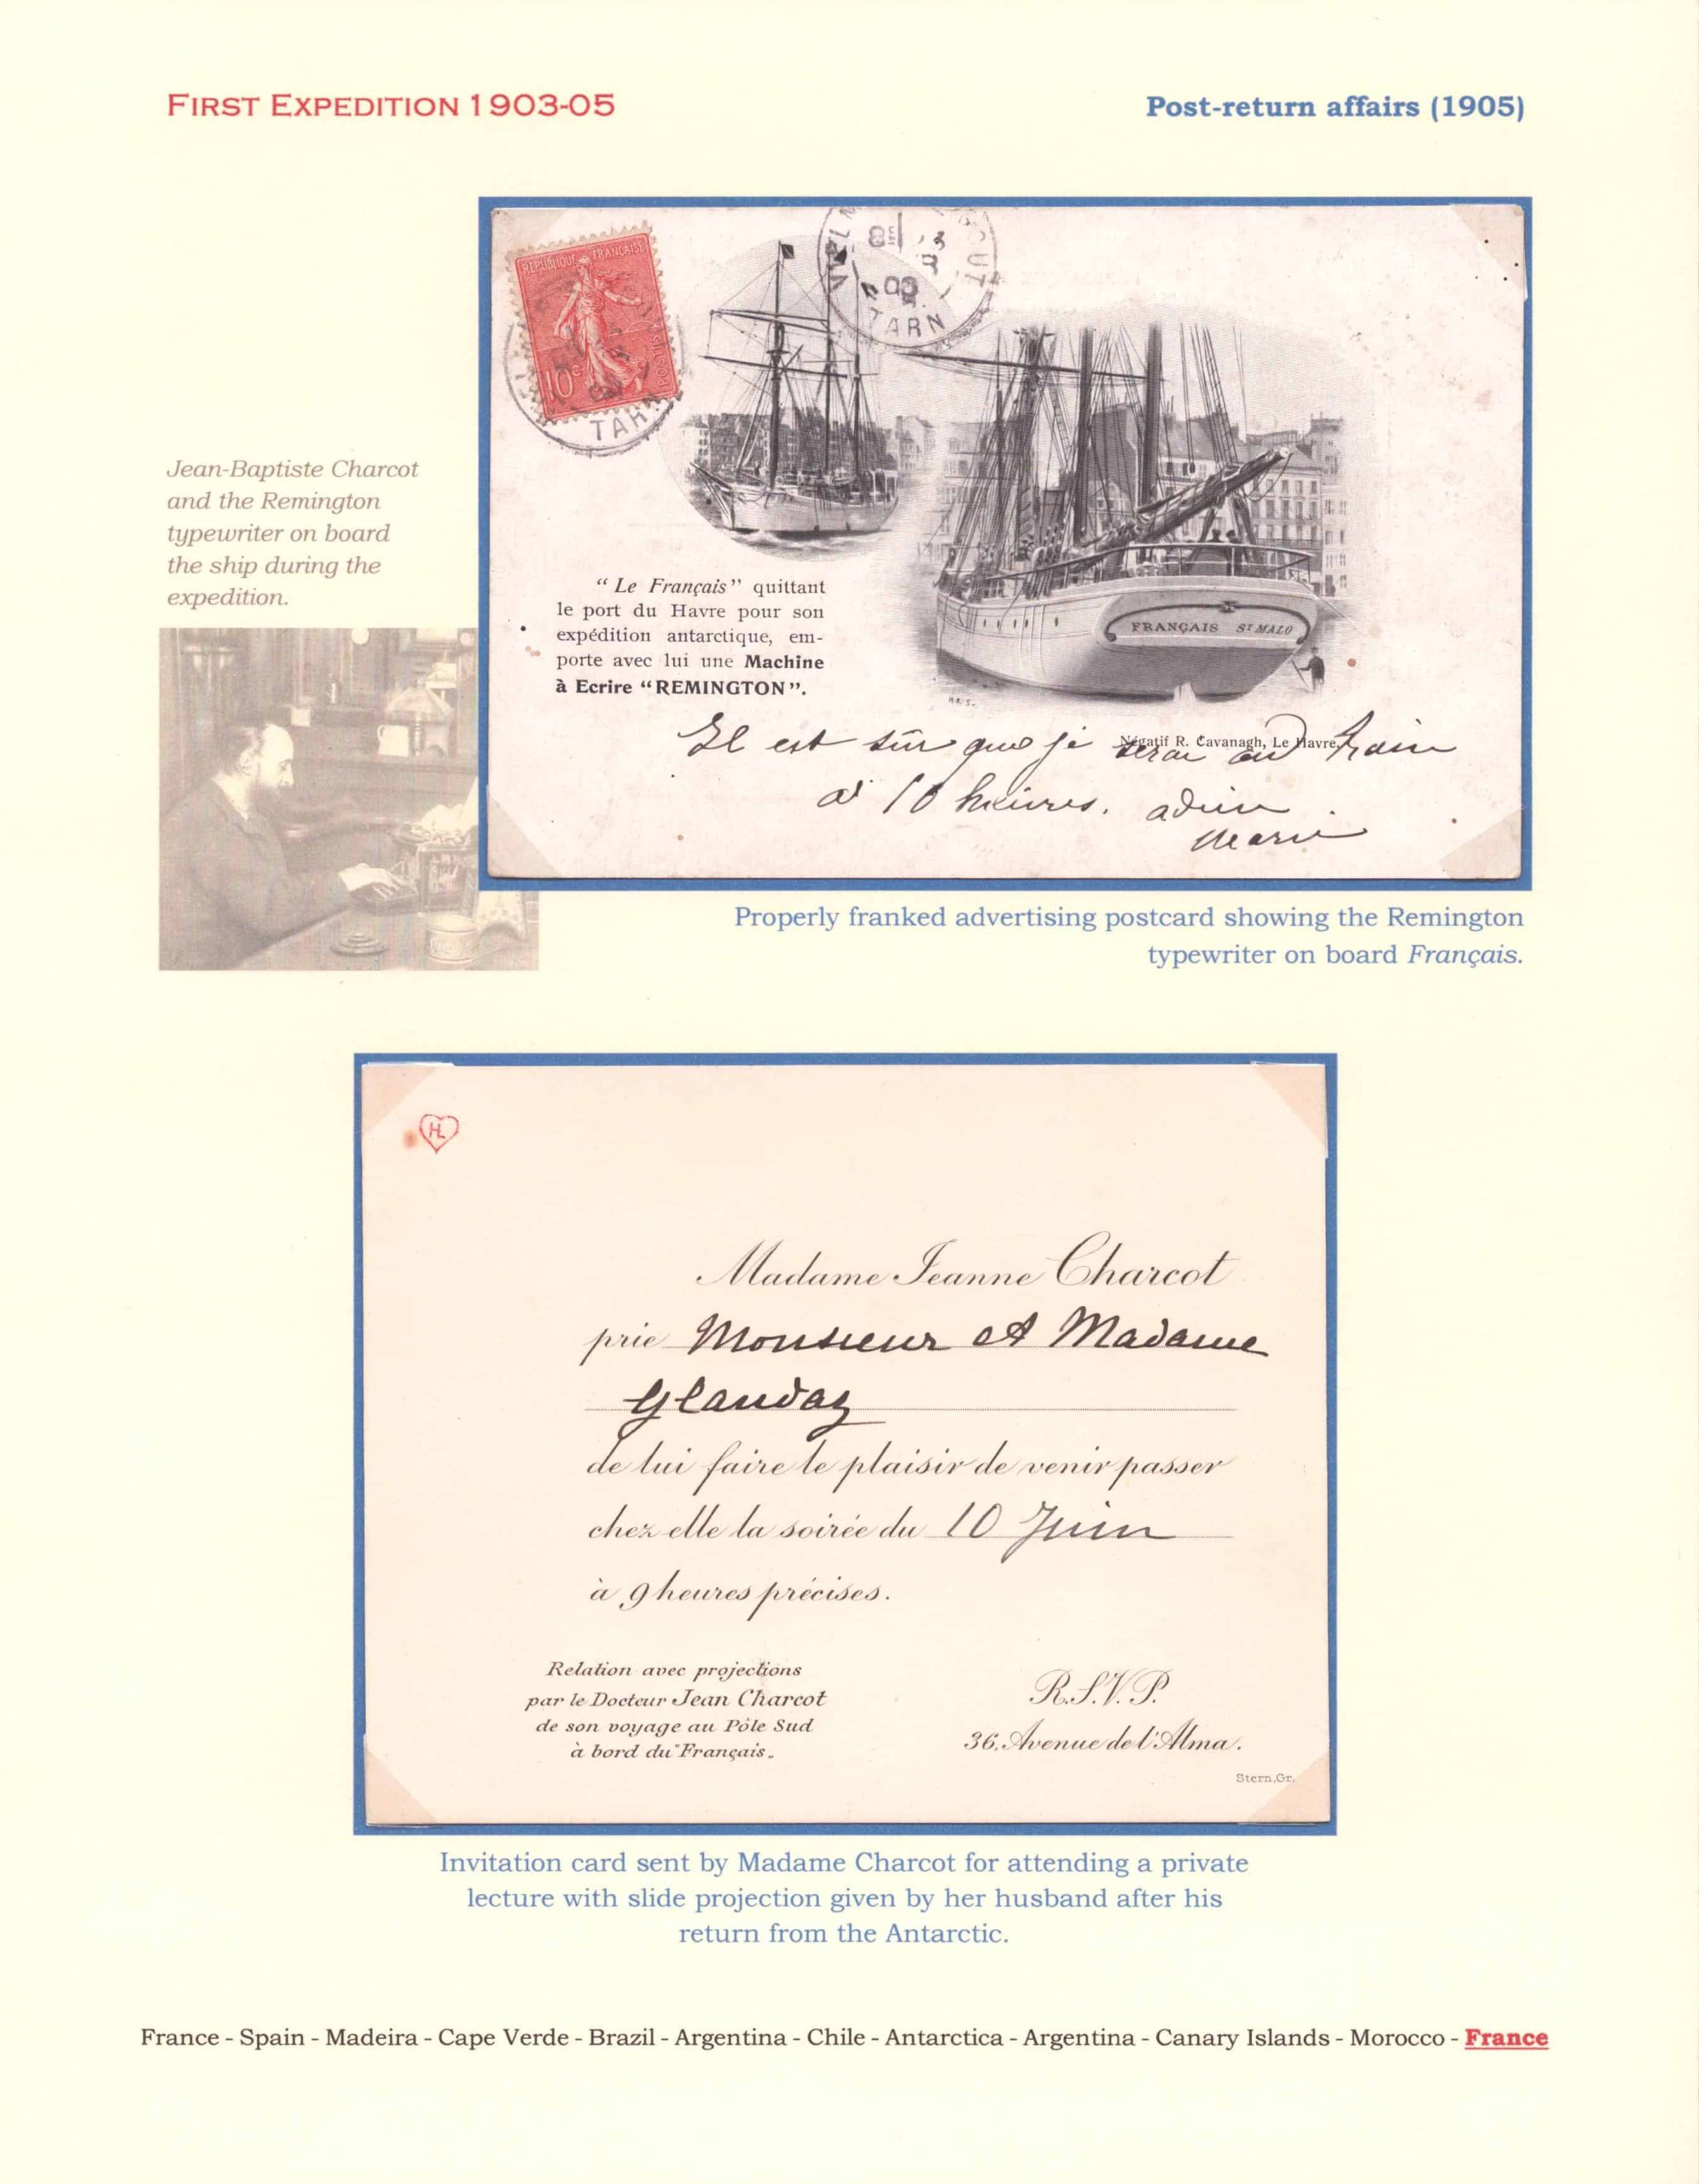 FIRST EXPEDITION 1903-05
Post-return affairs (1905)
REPUBLIQUE FRANÇAISE
10c
POSTES
TARN
TARN
Jean-Baptiste Charcot
and the Remington
typewriter on board
the ship during the
expedition.
“ Le Français” quittant
le port du Havre pour son
expédition antarctique, em-
porte avec lui une Machine
à Ecrire “REMINGTON”.
FRANÇAIS ST MALO
Négatif R. Cavanagh, Le Havre
Il est sûr que je serai au train
à 10 heures. adieu
Marie
Properly franked advertising postcard showing the Remington
typewriter on board Français.
HL
Madame Jeanne Charcot
prie Monsieur et Madame
Glandaz
de lui faire le plaisir de venir passer
chez elle la soirée du 10 Juin
à 9 heures précises.
Relation avec projections
par le Docteur Jean Charcot
de son voyage au Pôle Sud
à bord du "Français„
R.S.V.P.
36, Avenue de l'Alma.
Stern, Gr.
Invitation card sent by Madame Charcot for attending a private
lecture with slide projection given by her husband after his
return from the Antarctic.
France - Spain - Madeira - Cape Verde - Brazil - Argentina - Chile - Antarctica - Argentina - Canary Islands - Morocco - France